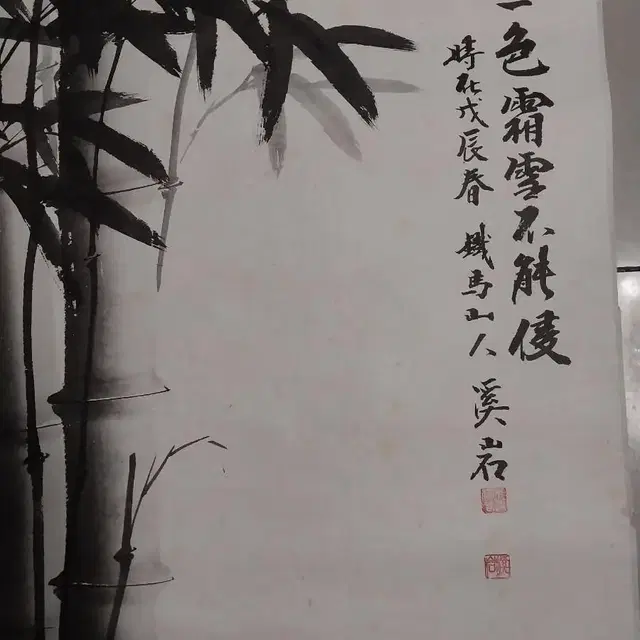 一色霜雪不能侵
時在戊辰春 鐵馬山人 奚岩